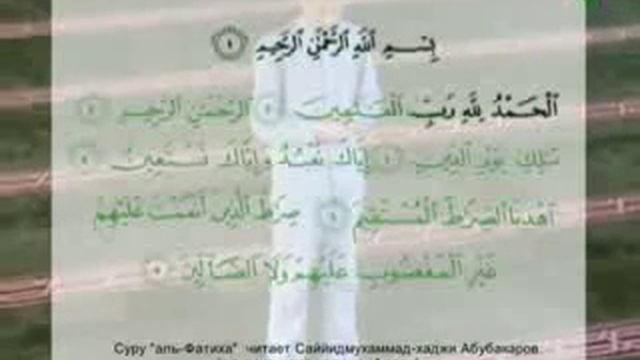 بِسْمِ ٱللَّهِ ٱلرَّحْمَٰنِ ٱلرَّحِيمِ ١
ٱلْحَمْدُ لِلَّهِ رَبِّ ٱلْعَٰلَمِينَ ٢ ٱلرَّحْمَٰنِ ٱلرَّحِيمِ ٣
مَٰلِكِ يَوْمِ ٱلدِّينِ ٤ إِيَّاكَ نَعْبُدُ وَإِيَّاكَ نَسْتَعِينُ ٥
ٱهْدِنَا ٱلصِّرَٰطَ ٱلْمُسْتَقِيمَ ٦ صِرَٰطَ ٱلَّذِينَ أَنْعَمْتَ عَلَيْهِمْ
غَيْرِ ٱلْمَغْضُوبِ عَلَيْهِمْ وَلَا ٱلضَّآلِّينَ ٧
Суру "аль-Фатиха" читает Саййидмухаммад-хаджи Абубакаров